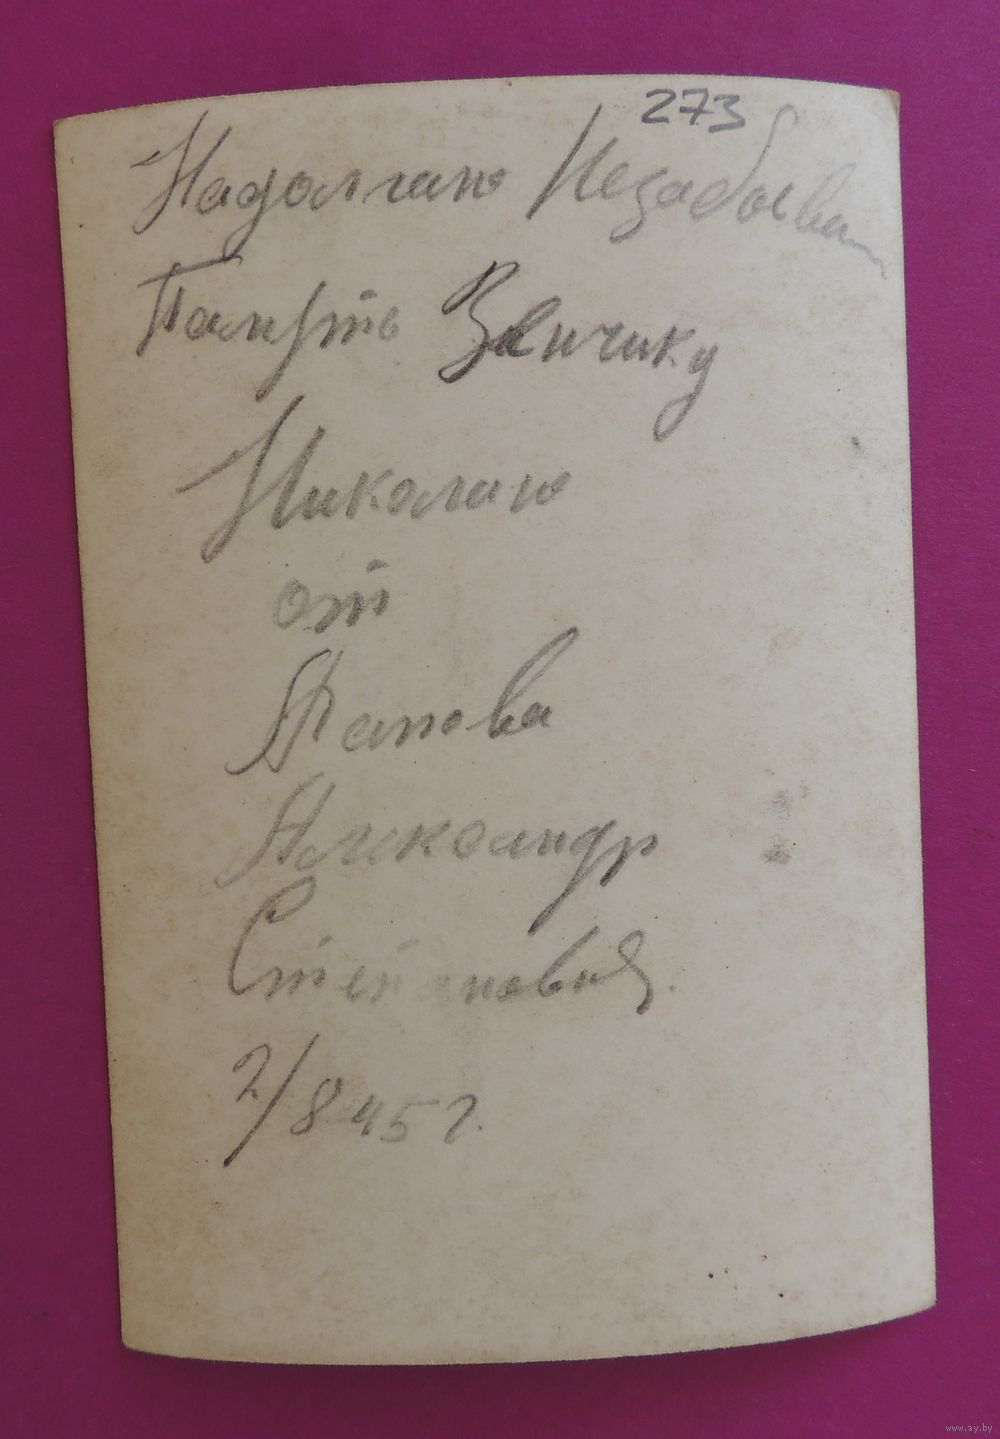 273
Надолгаю Незабывай
Память Зеничику
Николаю
от
Папова
Александр
Степанович.
2/8 45 г.
www.ay.by